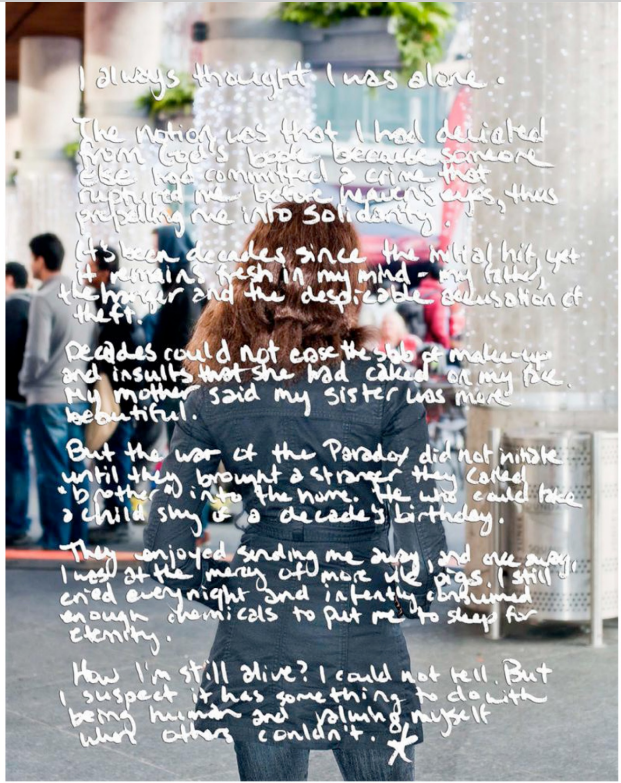 I always thought I was alone.
The notion was that I had deviated
from God's book, because someone
else had committed a crime that
ruptured me before heaven's eyes, thus
propelling me into solidarity.
It's been decades since the initial hit, yet
it remains fresh in my mind - my father,
the hanger and the despicable accusation of
theft.
Decades could not ease the slab of make-up
and insults that she had caked on my face.
My mother said my sister was more
beautiful.
But the war of the Paradox did not initiate
until they brought a stranger they called
"brother" into the home. He who could take
a child shy of a decade's birthday.
They enjoyed sending me away, and once away,
I was at the mercy of more vile pigs. I still
cried every night and intently consumed
enough chemicals to put me to sleep for
eternity.
How I'm still alive? I could not tell. But
I suspect it has something to do with
being human and valuing myself
when others couldn't.